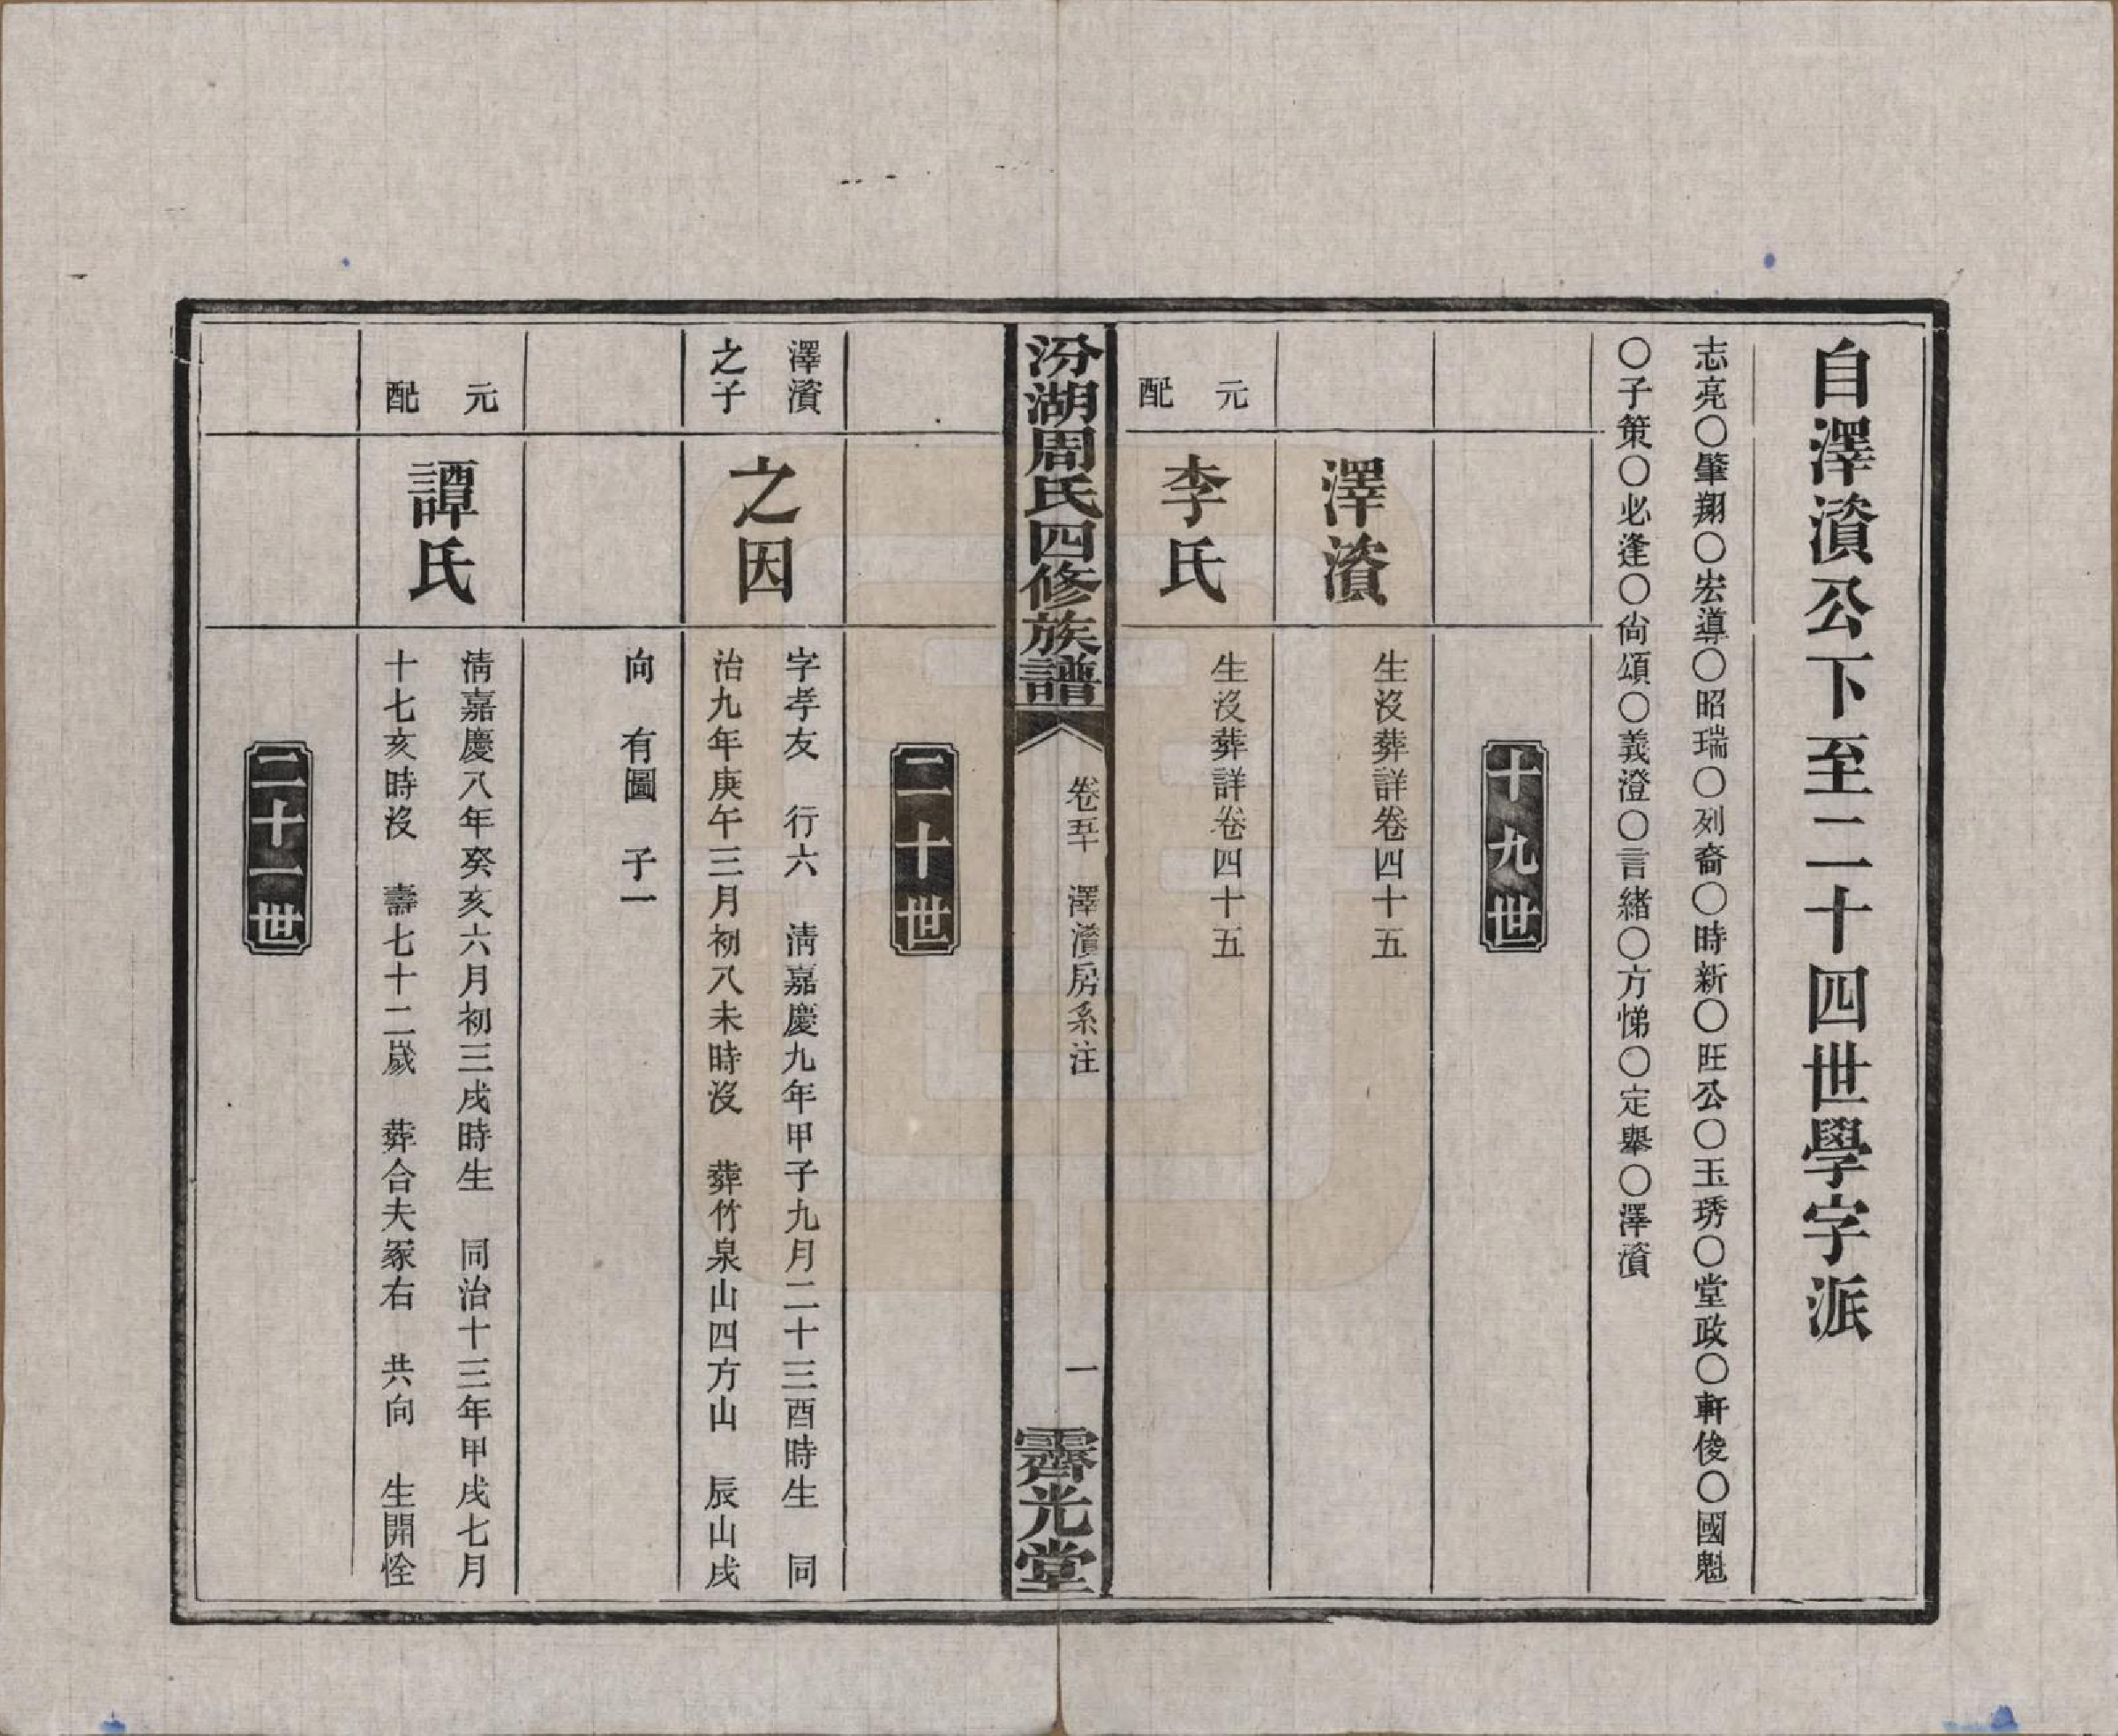 自澤濱公下至二十四世學字派
志亮〇肇翔〇宏導〇昭瑞〇列裔〇時新〇旺公〇玉琇〇堂政〇軒俊〇國魁
〇子策〇必逢〇尙頌〇義澄〇言緒〇方悌〇定舉〇澤濱
十九世
澤濱
生沒葬詳卷四十五
元配
李氏
生沒葬詳卷四十五
汾湖周氏四修族譜
卷五十
澤濱房系注
一
霽光堂
二十世
澤濱之子
之因
字孝友 行六 淸嘉慶九年甲子九月二十三酉時生 同
治九年庚午三月初八未時沒 葬竹泉山四方山 辰山戌
向 有圖 子一
元配
譚氏
淸嘉慶八年癸亥六月初三戌時生 同治十三年甲戌七月
十七亥時沒 壽七十二歲 葬合夫冢右 共向 生開恮
二十一世